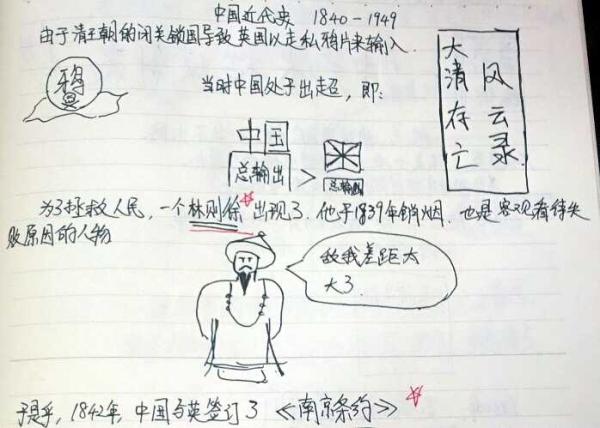 中国近代史 1840-1949
由于清王朝的闭关锁国导致英国以走私鸦片来输入.
大清存亡
风云录
当时中国处于出超，即：
中国
总输出 >
总输出
为了拯救人民，一个林则徐出现了.他于1839年销烟.也是客观看待失
败原因的人物
敌我差距太
大了.
于是乎，1842年，中国与英签订了《南京条约》